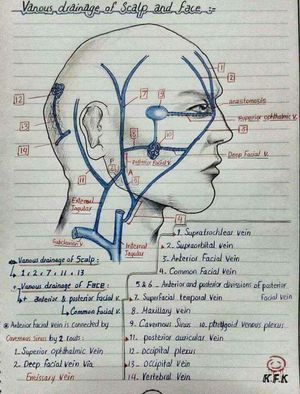 Vanous drainage of Scalp and Face :-
1
2
7
9
12
anastomosis
Superior ophthalmic v.
3
13
8
10
14
Deep Facial v.
Posterior Facial v.
5
P
A
11
6
External
Jagular
4
Subclavian v.
Internal
Jagular
Vanous drainage of Scalp :-
1 2 7 11 13
Vanous drainage of Face :-
Anterior & posterior facial v.
Common facial v.
Anterior facial vein is connected by
Cavernous Sinus by 2 routs :
1. Superior ophthalmic Vein
2. Deep facial vein Via
Emissary vein
1. Supratrochlear vein
2. Supraorbital vein
3. Anterior Facial vein
4. Common Facial Vein
5 & 6 . Anterior and posterior divisions of posterior
Facial vein
7. Superfacial temporal Vein
8. Maxillary vein
9. Cavernous Sinus 10. pterygoid venous plexus
11. posterior auricular Vein
12. occipital plexus
13. occipital vein
14. Vertebral vein
K.F.K